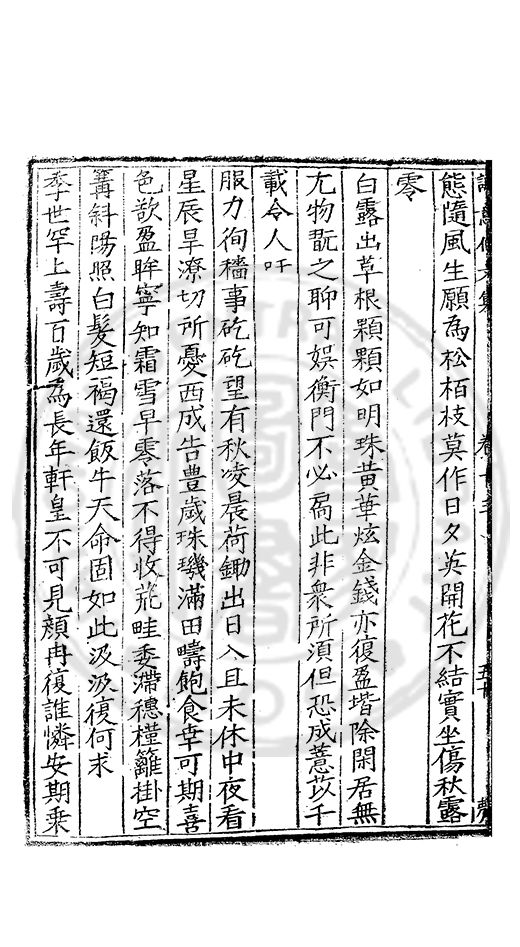 態隨風生願為松栢枝莫作日夕英開花不結實坐傷秋露
零
白露出草根顆顆如明珠黄華炫金錢亦復盈堦除閑居無
尤物翫之聊可娱衡門不必扄此非衆所須但恐成薏苡千
載令人吁
服力徇穡事矻矻望有秋凌晨荷鋤出日入且未休中夜看
星辰旱潦切所憂西成告豊歲珠璣滿田疇飽食幸可期喜
色欲盈眸寧知霜雪早零落不得收荒畦委滯穗槿籬掛空
篝斜陽照白髮短褐還飯牛天命固如此汲汲復何求
季世罕上壽百歲為長年軒皇不可見顔冉復誰憐安期乗